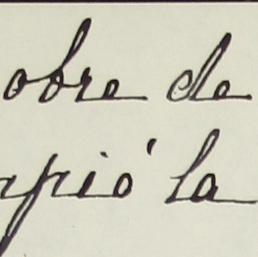 obre de
rpió la